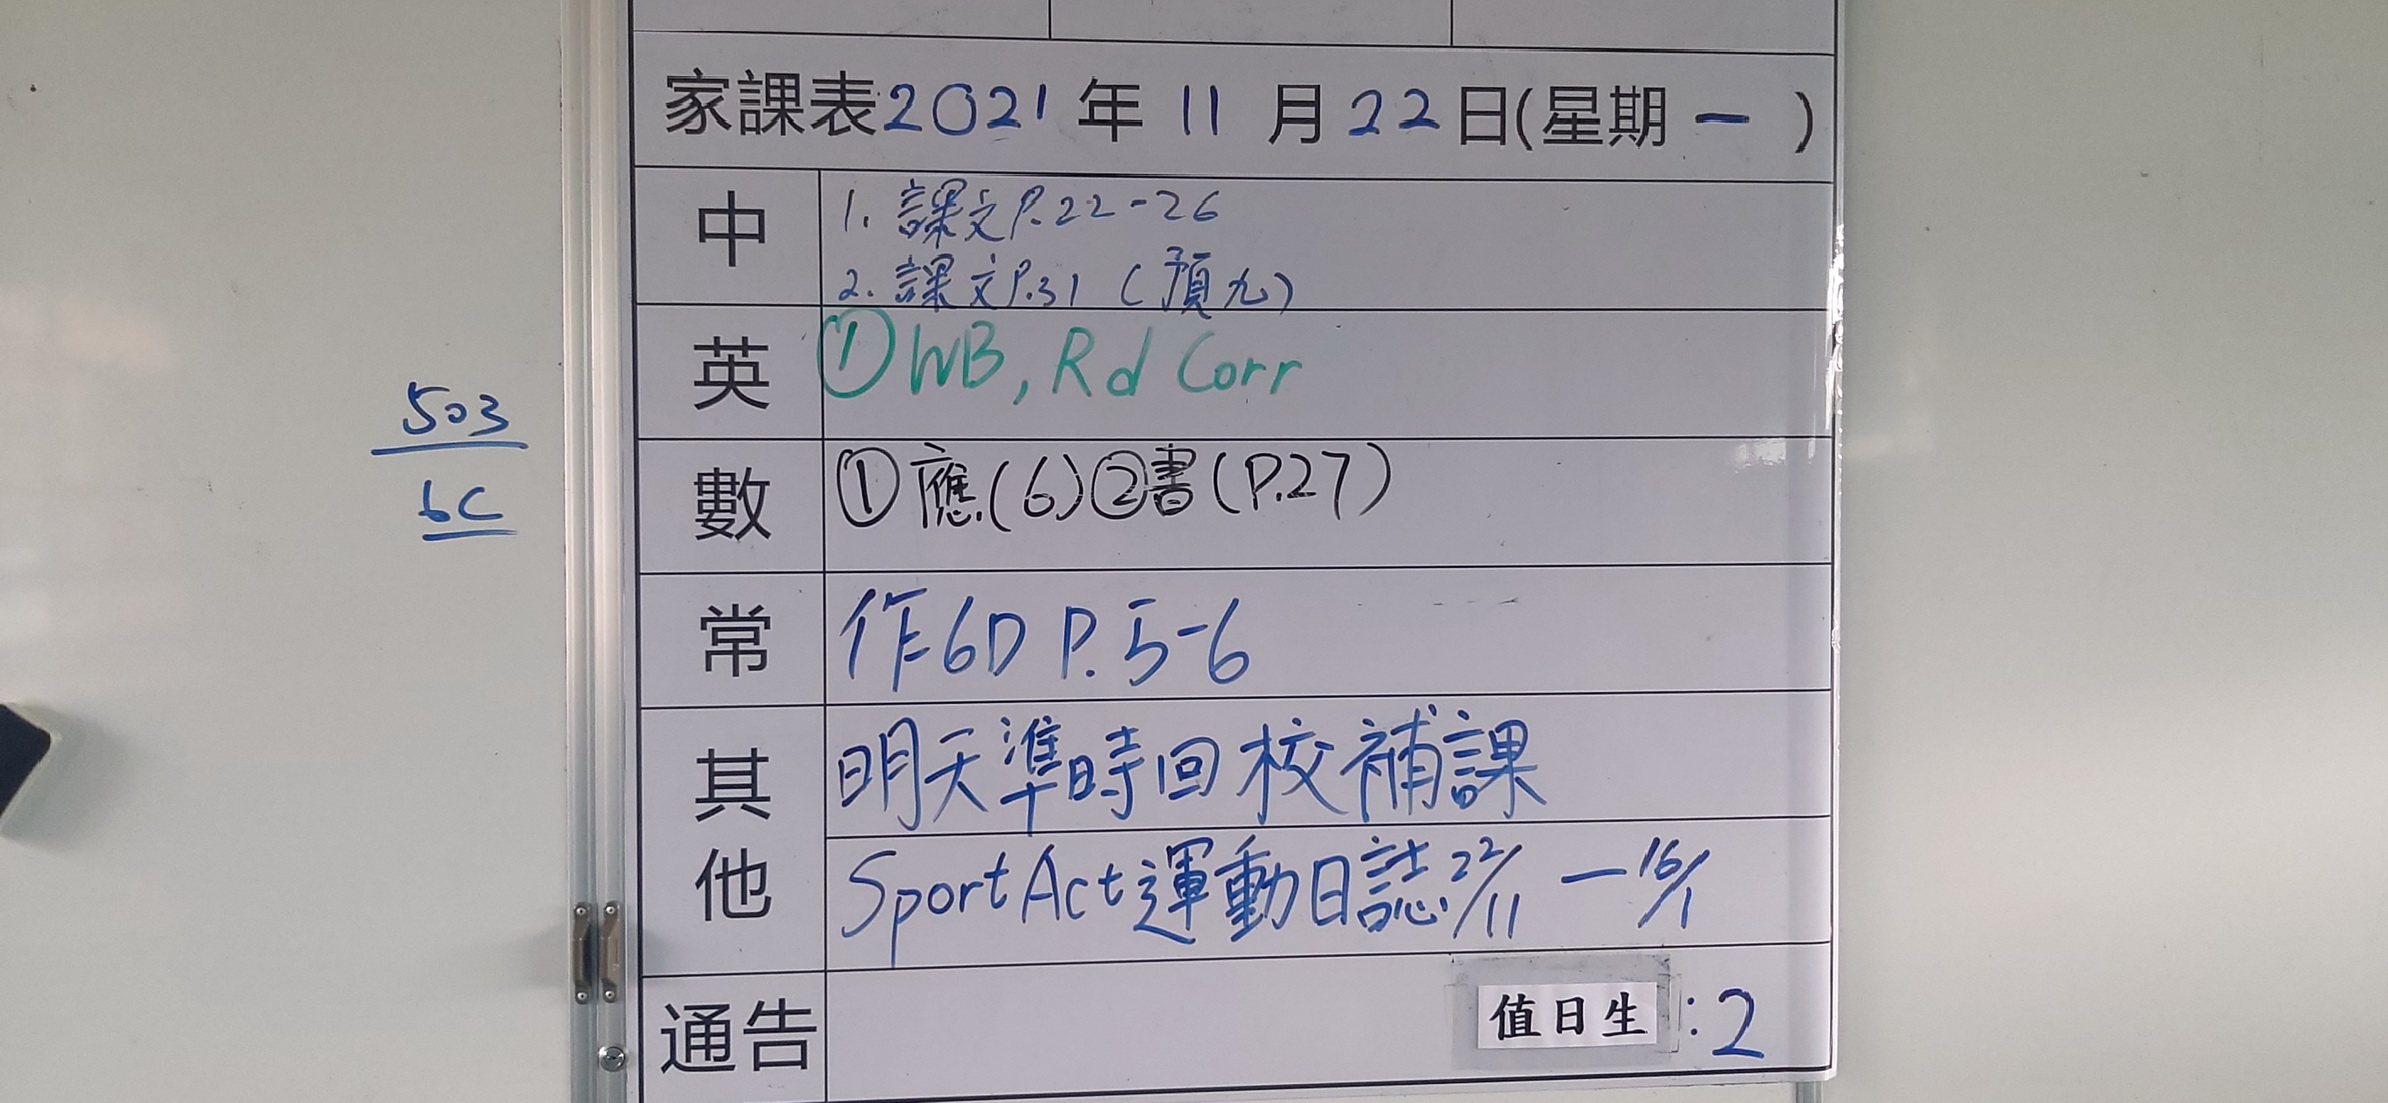 家課表2021年11月22日(星期一)
中
1. 課文P.22-26
2. 課文P.31 (預九)
英
①WB, Rd Corr
503
6C
數
①應(6)②書(P.27)
常
作6D P.5-6
其他
明天準時回校補課
SportAct運動日誌22/11 — 16/1
通告
值日生:2